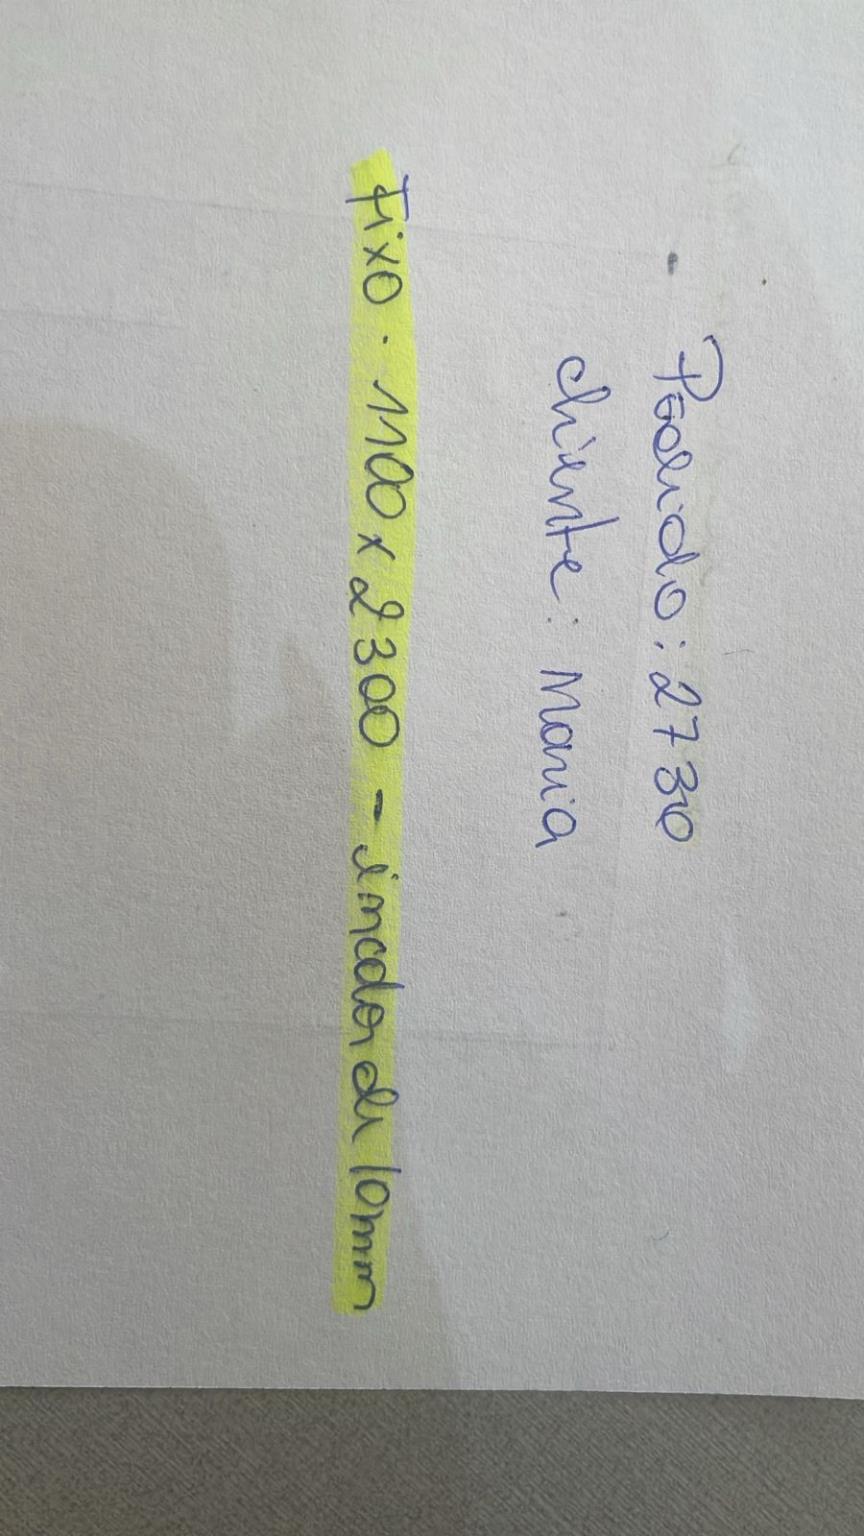 Pedido: 2730
cliente: Maria
Fixo. 1100 x 2300 - incolor de 10mm